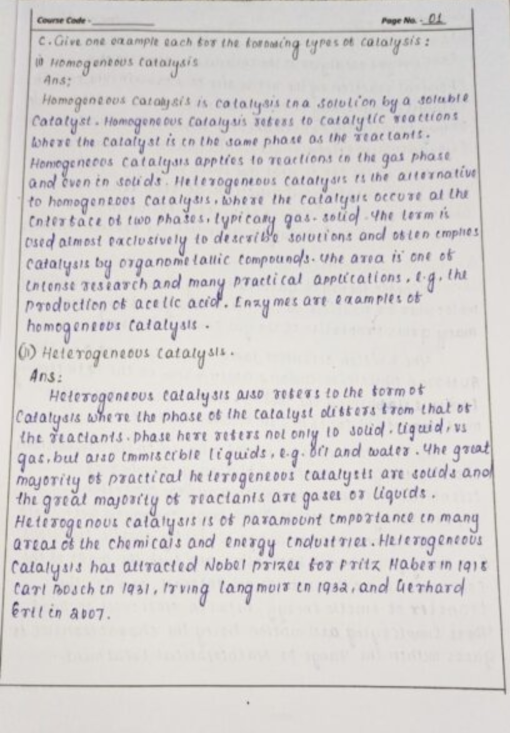 Course Code - 
Page No. - 01
C. Give one example each for the forowing types of catalysis :
(i) Homogeneous Catalysis
Ans:
Homogeneous Catalysis is catalysis in a solution by a soluble
Catalyst. Homogeneous Catalysis refers to catalytic reactions
where the catalyst is in the same phase as the reactants.
Homogeneous Catalysis applies to reactions in the gas phase
and even in solids. Heterogeneous Catalysis is the alternative
to homogeneous Catalysis, where the Catalysis occurs at the
interface of two phases, typicany gas-solid. The term is
used almost exclusively to describe solutions and often implies
Catalysis by organometallic compounds. The area is one of
intense research and many practical applications, e.g. the
production of acetic acid. Enzymes are examples of
homogeneous Catalysis.
(ii) Heterogeneous Catalysis.
Ans:
Heterogeneous Catalysis also refers to the form of
Catalysis where the phase of the catalyst differs from that of
the reactants. phase here refers not only to solid, liquid, vs
gas, but also immiscible liquids, e.g. oil and water. The great
majority of practical heterogeneous catalysts are solids and
the great majority of reactants are gases or liquids.
Heterogenous Catalysis is of paramount importance in many
areas of the chemicals and energy industries. Heterogeneous
Catalysis has attracted Nobel prizes for Fritz Haber in 1918
Carl Bosch in 1931, Irving Langmuir in 1932, and Gerhard
Ertl in 2007.